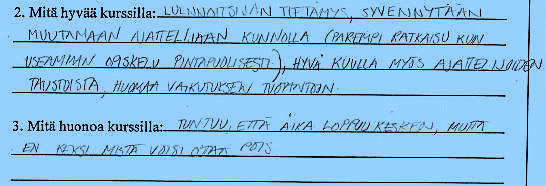 2. Mitä hyvää kurssilla: LUENNOITSIJAN TIETÄMYS, SYVENNYTÄÄN
MUUTAMAAN AJATTELIJAAN KUNNOLLA (PAREMPI RATKAISU KUIN
USEAMMAN OPISKELU PINTAPUOLISESTI), HYVÄ KUULLA MYÖS AJATTELIJOIDEN
TAUSTOISTA, HUOMAA VAIKUTUKSEN TUOTANTOON.
3. Mitä huonoa kurssilla: TUNTUU, ETTÄ AIKA LOPPUU KESKEN, MUTTA
EN KEKSI MISTÄ VOISI OTTAA POIS